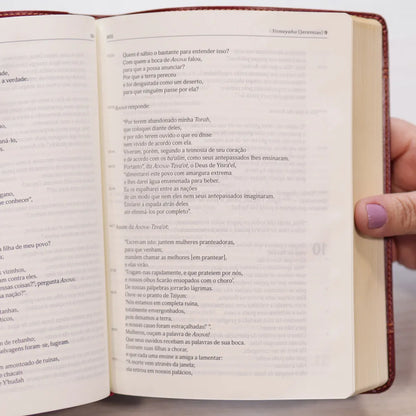 a verdade.
ná-lo,
gano,
e conhecer",
filha de meu povo?
vizinhos,
am contra eles.
sas coisas?", pergunta ADONAI.
a nação?".
de rebanho;
selvagens foram-se, fugiram.
m amontoado de ruínas,
de chacais
Y'hudah
Yirmeyahu (Jeremias) 9
Quem é sábio o bastante para entender isso?
Com quem a boca de ADONAI falou,
para que a possa anunciar?
Por que a terra pereceu
e foi desgastada como um deserto,
para que ninguém passe por ela?
ADONAI responde:
"Por terem abandonado minha Torah,
que coloquei diante deles,
e por não terem ouvido o que eu disse
nem vivido de acordo com ela.
Viveram, porém, segundo a teimosia de seu coração
e de acordo com os ba'alim, como seus antepassados lhes ensinaram.
Portanto", diz ADONAI-Tzva'ot, o Deus de Yisra'el,
"alimentarei este povo com amargura extrema
e lhes darei água envenenada para beber.
Eu os espalharei entre as nações
de um modo que nem eles nem seus antepassados imaginaram.
Enviarei a espada atrás deles
até eliminá-los por completo".
Assim diz ADONAI-Tzva'ot:
"Escrevam isto: juntem mulheres pranteadoras,
para que venham,
mandem chamar as melhores [em prantear],
e elas virão.
'Façam-nas rapidamente, e que prateiem por nós,
e nossos olhos ficarão ensopados com o choro'.
De nossas palpebras jorrarão lágrimas.
Ouve-se o pranto de Tziyon:
'Nós estamos em completa ruína,
totalmente envergonhados,
pois deixamos a terra,
e nossas casas foram estraçalhadas!' ".
Mulheres, ouçam a palavra de ADONAI!
Que seus ouvidos recebam as palavras de sua boca.
Ensinem suas filhas a chorar,
e que cada uma ensine a amiga a lamentar:
"A morte vem através da janela;
ela entrou em nossos palácios,